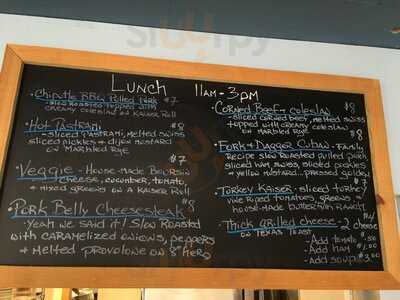 Lunch 11am - 3pm
- Chipotle BBQ Pulled Pork $7
- slow roasted topped with
creamy coleslaw on Kaiser Roll
- Hot Pastrami $8
- sliced Pastrami, melted swiss
sliced pickles + dijon mustard
on Marbled Rye
Veggie - House-made Boursin $7
cheese, cucumber, tomato,
+ mixed greens on a Kaiser Roll
Pork Belly Cheesesteak $8
Yeah we said it! Slow Roasted
with caramelized onions, peppers
+ Melted provolone on 8" hero
Corned Beef + coleslaw $8
- sliced corned beef, melted swiss
topped with creamy coleslaw
on Marbled Rye $8
Fork + Dagger Cuban - Family
Recipe slow roasted pulled pork,
sliced ham, swiss, sliced pickles
+ yellow mustard... pressed golden
$7
Turkey Kaiser - sliced turkey
vine riped tomatoes, greens, +
house-made butter
Thick grilled cheese - 2 cheese
on Texas Toast
- Add tomato .50
- Add ham $1.00
- add soup $3.00